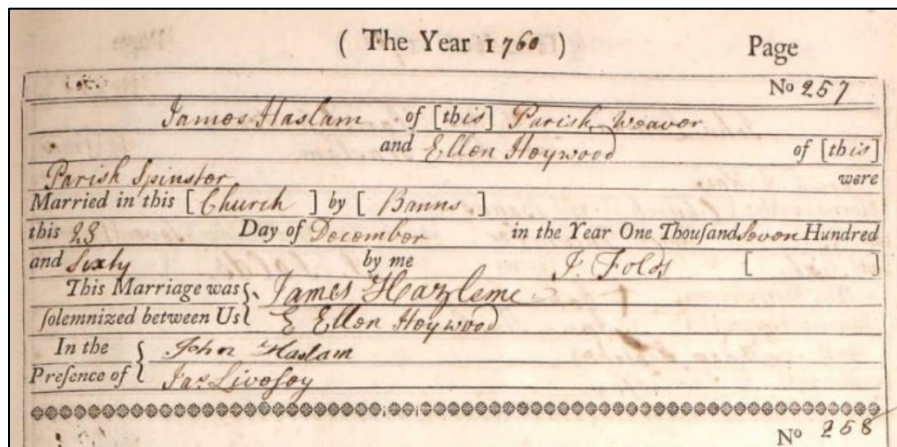 ( The Year 1760 ) Page
No 257
James Haslam of [this] Parish Weaver
and Ellen Heywood of [this]
Parish Spinster were
Married in this [ Church ] by [ Banns ]
this 23 Day of December in the Year One Thousand Seven Hundred
and Sixty by me J. Folds [ ]
This Marriage was { James Hazleme
ſolemnized between Us { E Ellen Heywood
In the { John Haslam
Preſence of { Jas Liveſey
No 258